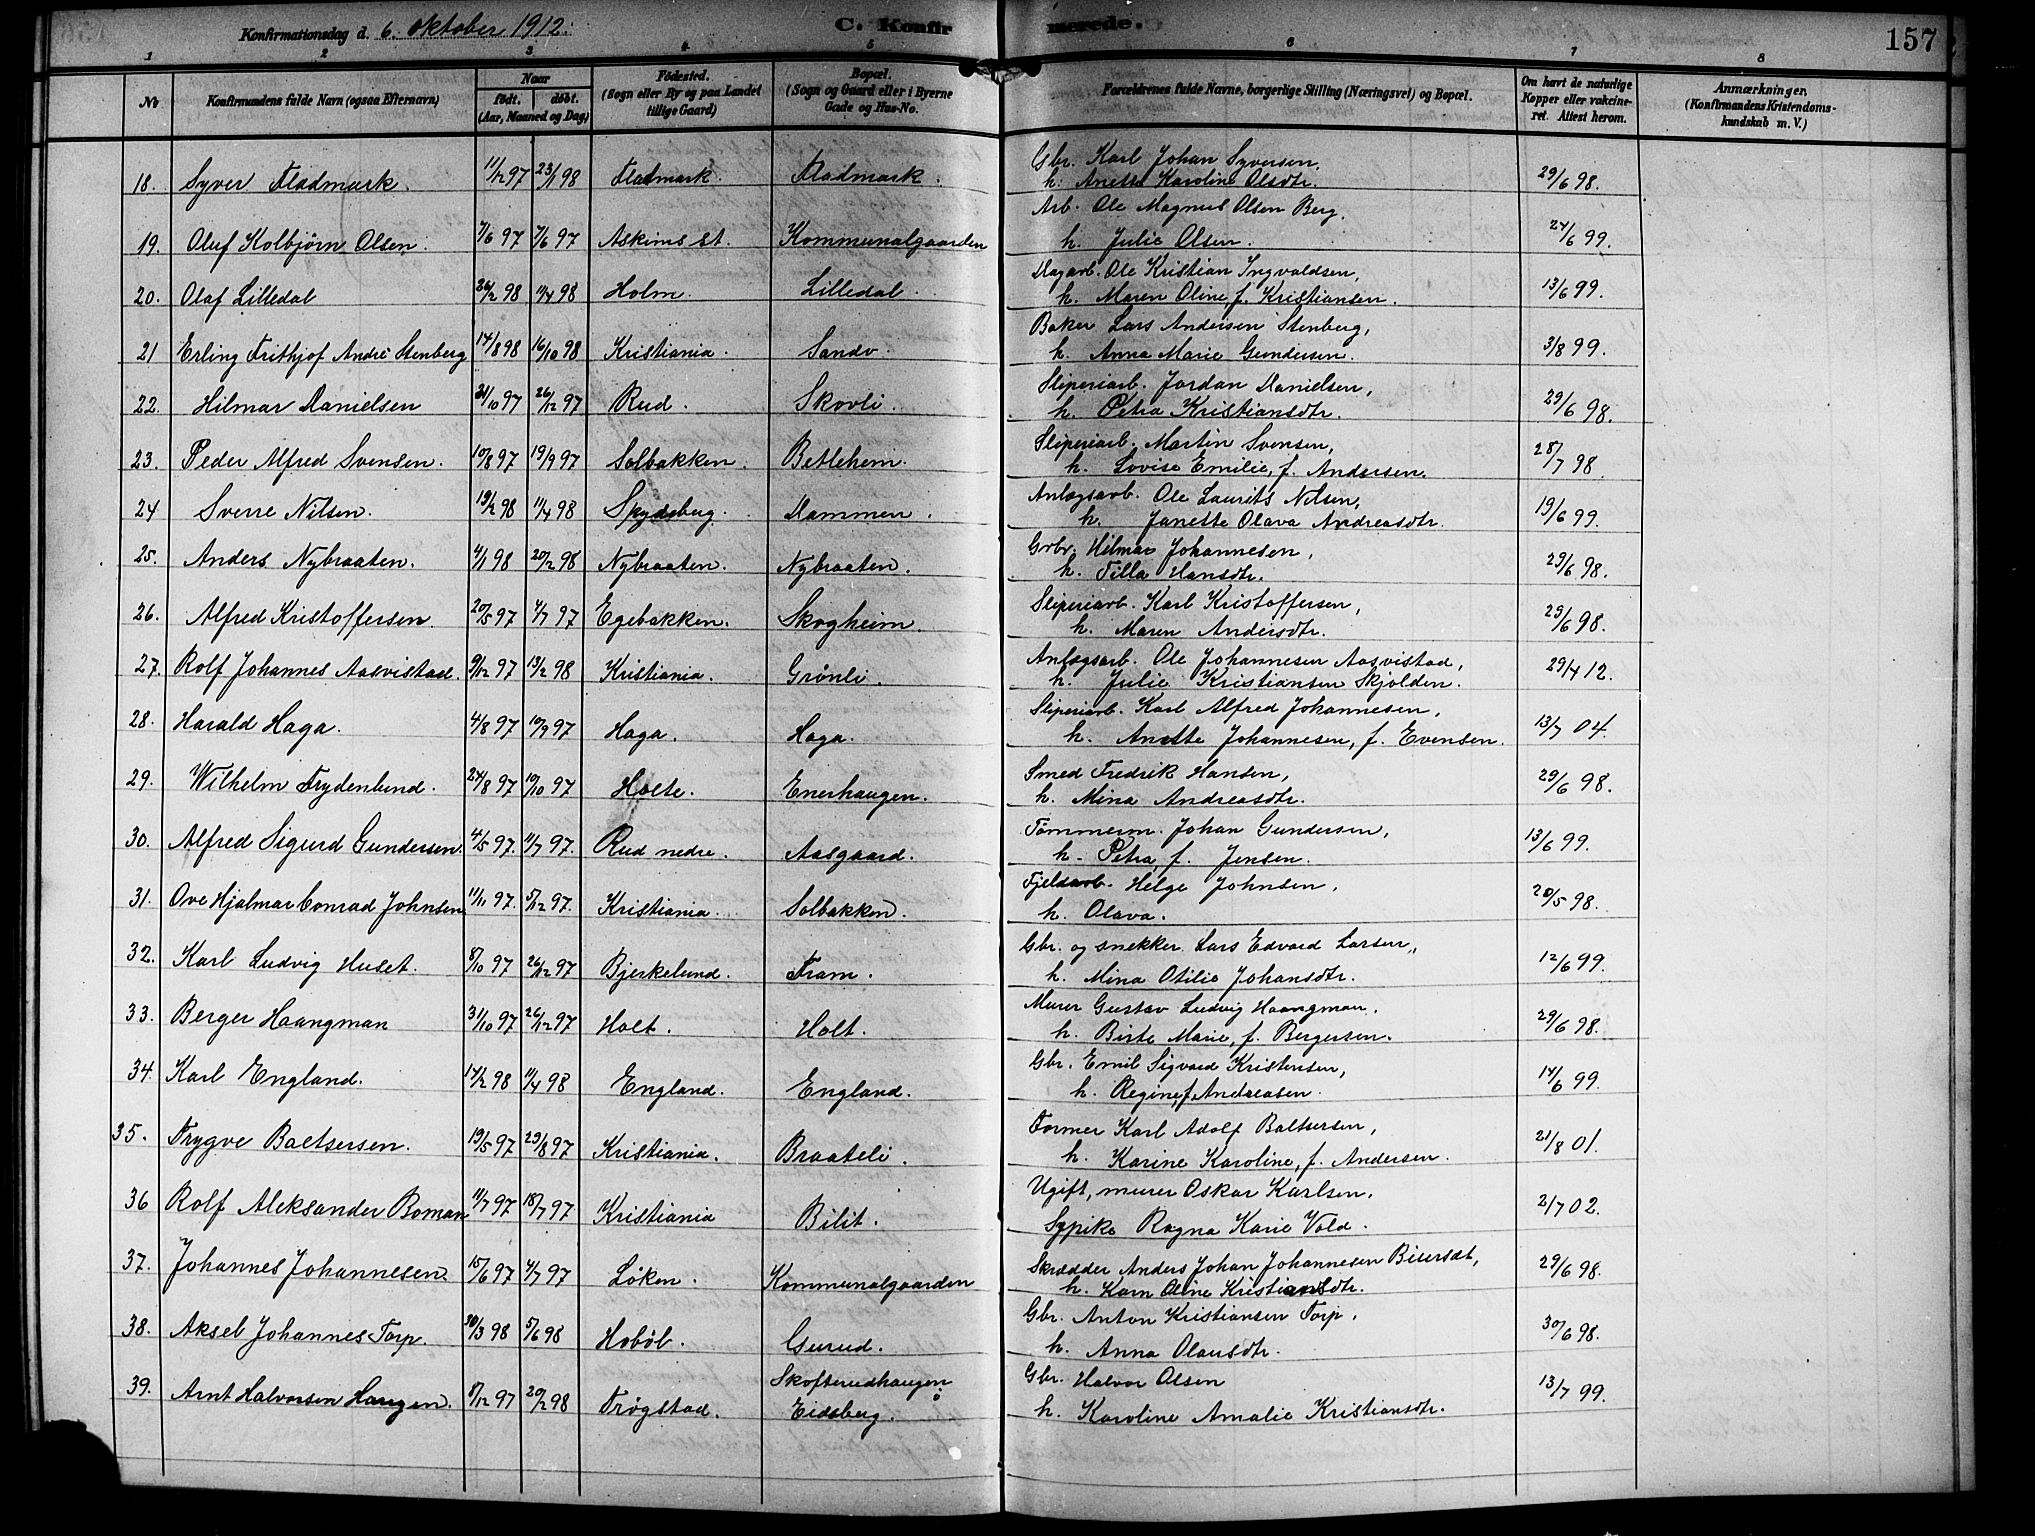 Konfirmationsdag d. 6. oktober 1912. C. Konfirmerede. 157
1 2 3 4 5 6 7 8
No Konfirmandens fulde Navn (ogsaa Efternavn) Naar født. døbt. (Aar, Maaned og Dag) Fødested. (Sogn eller By og paa Landet tillige Gaard) Bopæl. (Sogn og Gaard eller i Byerne Gade og Hus-No. Forældrenes fulde Navne, borgerlige Stilling (Næringsvei) og Bopæl. Om havt de naturlige Kopper eller vakcineret. Attest herom. Anmærkninger. (Konfirmandens Kristendomskundskab m. V.)
18. Syver Fladmark. 11/12 97 23/1 98 Fladmark. Fladmark. Gbr. Karl Johan Syversen, 29/6 98.
h. Anette Karoline Olsdtr.
19. Oluf Kolbjørn Olsen. 7/6 97 7/6 97 Askims st. Kommunalgaarden Arb. Ole Magnus Olsen Berg. 24/6 99.
h. Julie Olsen.
20. Olaf Lilledal 26/2 98 11/4 98 Holm. Lilledal. Dagarb. Ole Kristian Ingvaldsen, 13/6 99.
h. Maren Oline, f. Kristiansen.
21 Erling Frithjof André Stenberg 14/8 98 16/10 98 Kristiania. Sandv. Baker Lars Andersen Stenberg, 3/8 99.
h. Anna Marie Gundersen.
22. Hilmar Danielsen 31/10 97 26/12 97 Rud. Skovli. Sliperiarb. Jordan Danielsen, 29/6 98.
h. Petra Kristiansdtr.
23. Peder Alfred Svensen. 10/8 97 19/9 97 Solbakken. Betlehem. Sliperiarb. Martin Svensen, 28/7 98.
h. Lovise Emilie, f. Andersen.
24 Sverre Nilsen. 19/2 98 11/4 98 Skydsberg. Dammen. Anlægsarb. Ole Laurits Nilsen, 19/6 99.
h. Janette Olava Andreasdtr.
25. Anders Nybraaten. 4/1 98 20/2 98 Nybraaten. Nybraaten. Grbr. Hilmar Johannesen, 29/6 98.
h. Tilla Hansdtr.
26. Alfred Kristoffersen. 20/5 97 4/7 97 Egebakken. Skogheim. Sliperiarb. Karl Kristoffersen, 29/6 98.
h. Maren Andersdtr.
27. Rolf Johannes Aasvistad. 9/12 97 13/2 98 Kristiania. Grønli. Anlægsarb. Ole Johannesen Aasvistad, 29/4 12.
h. Julie Kristiansen Skjolden.
28. Harald Haga. 4/8 97 19/9 97 Haga. Haga. Sliperiarb. Karl Alfred Johannesen, 13/7 04.
h. Anette Johannesen, f. Evensen.
29. Wilhelm Frydenlund. 24/8 97 10/10 97 Holte. Enerhaugen. Smed Fredrik Hansen, 29/6 98.
h. Mina Andreasdtr.
30. Alfred Sigurd Gundersen. 4/5 97. 11/7 97. Rud nedre. Aasgaard. Tømmerm. Johan Gundersen, 13/6 99.
h. Petra, f. Jensen.
31. Ove Hjalmar Conrad Johnsen 11/11 97. 5/12 97. Kristiania. Solbakken. Fjeldarb. Helge Johnsen, 20/5 98.
h. Olava.
32. Karl Ludvig Huset. 8/10 97 26/12 97 Bjerkelund. Fram. Gbr. og snekker. Lars Edvard Larsen, 12/6 99.
h. Mina Otilie Johansdtr.
33. Berger Haangman 31/10 97 26/12 97 Holt. Holt. Murer Gustav Ludvig Haangman, 29/6 98.
h. Birte Marie, f. Bergersen.
34. Karl England. 14/2 98 11/4 98 England. England. Gbr. Emil Sigvard Kristensen, 14/6 99.
h. Regine, f. Andreasen.
35. Trygve Baltsersen. 19/5 97 29/8 97 Kristiania. Braateli. Former Karl Adolf Baltsersen, 21/8 01.
h. Karine Karoline, f. Andersen.
36 Rolf Aleksander Boman 11/7 97 18/7 97 Kristiania Bilit. Ugift, murer Oskar Karlsen, 2/7 02.
Sypike Ragna Karie Vold.
37. Johannes Johannesen. 15/6 97 4/7 97 Løken. Kommunalgaarden Skrædder Anders Johan Johannesen 29/6 98.
h. Karn Oline Kristiansdtr.
38. Aksel Johannes Torp. 30/3 98 5/6 98 Hobøl. Gurud. Gbr. Anton Kristiansen Torp, 30/6 98.
h. Anna Olausdtr.
39. Arnt Halvorsen Haugen. 8/12 97 20/2 98 Trøgstad. Skofterudhaugen Gbr. Halvor Olsen 13/7 99.
i Eidsberg. h. Karoline Amalie Kristiansdtr.